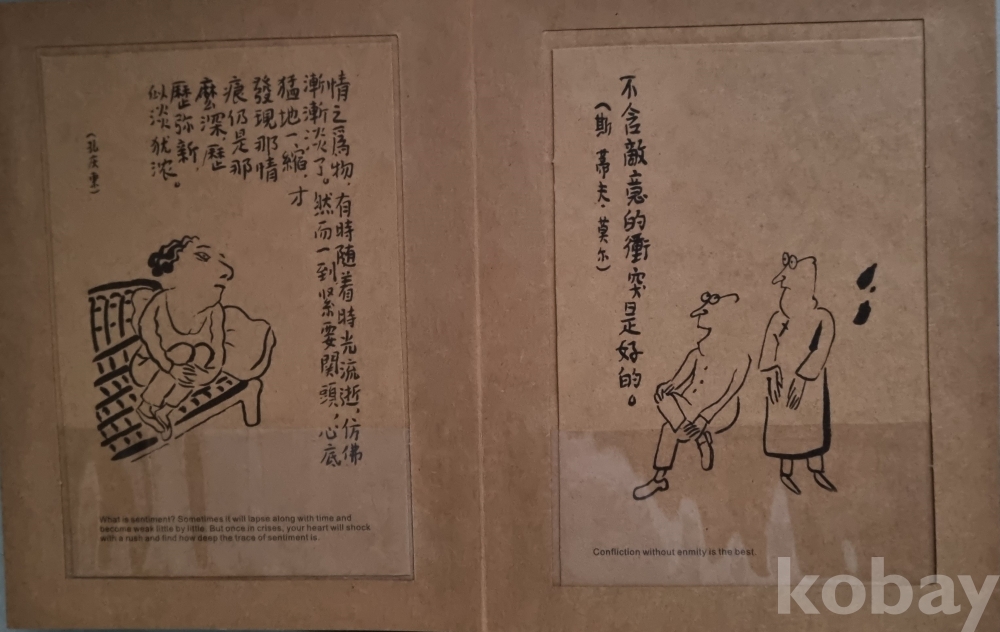 情之爲物，有時随着時光流逝，仿佛
漸漸淡了。然而一到緊要関頭，心底
猛地一縮，才
發現那情
痕仍是那
麽深，歷
歷弥新，
似淡犹浓。
What is sentiment? Sometimes it will lapse along with time and
become weak little by little. But once in crises, your heart will shock
with a rush and find how deep the trace of sentiment is.
不含敵意的衝突是好的。
（斯蒂夫·莫尔）
Confliction without enmity is the best.
kobay